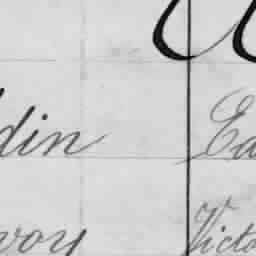 din Ea
voy Victo